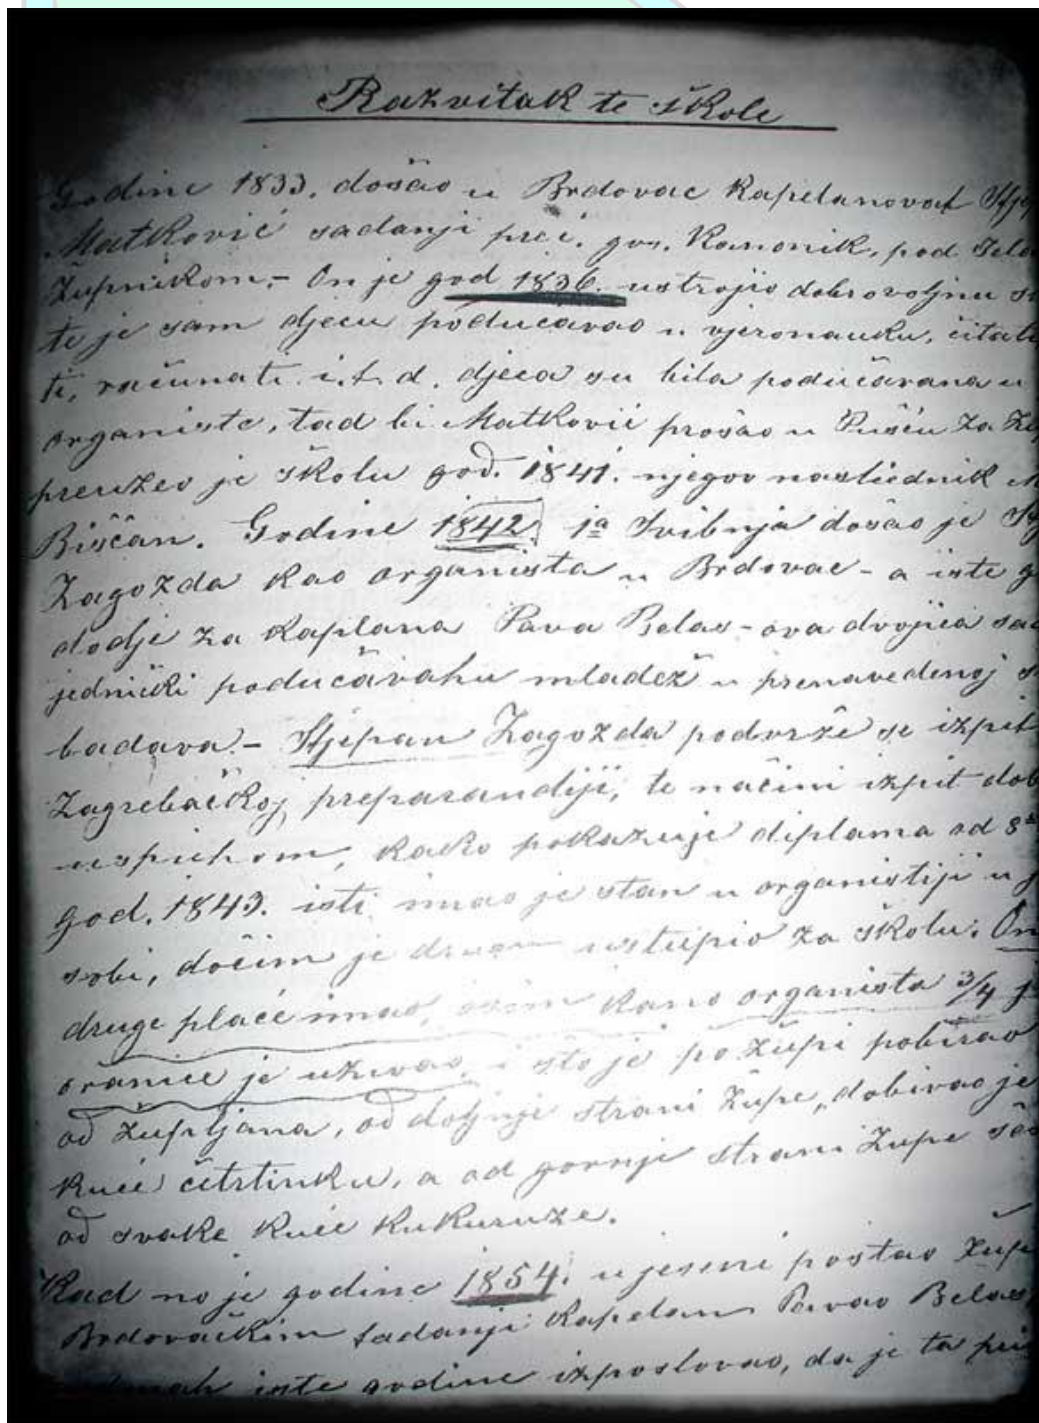 Razvitak te škole
Godine 1833. došao u Brdovac kapelanovat Stje
Matković sadanji preč. gos. kanonik, pod
župnikom. – On je god 1836. ustrojio dobrovoljnu
te je sam djecu podučavao u vjeronauku, čitati
ti, računati i.t.d. djeca su bila podučavana u
organiste, tad bi Matković prošao u Pušću za
preuzeo je školu god. 1841. njegov nasliednik
Biščan. Godine 1842. 1a Svibnja došao je
Zagožda kao organista u Brdovac – a iste g
dodje za kaplana Pava Belas – ova dvojica
jednički podučavahu mladež u prenavedenoj
badava. – Stjepan Zagožda podvrže se izpit
Zagrebačkoj preparandiji, te načini izpit dob
uspiehom, kako pokazuje diploma od 8
god. 1843. isti imao je stan u organistiji u j
sobi, dočim je drugu ustupio za školu. On
druge plaće imao, osim kano organista 3/4 j
oranice je uživao, i što je po župi pobirao
od župljana, od doljnje strani župe, dobivao je
kuće četrtinku, a od gornje strani župe
od svake kuće kukuruze.
Kad no je godine 1854. u jeseni postao župn
Brdovačkim sadanji kapelan Pavao Belas,
odmah iste godine izposlovao, da je ta